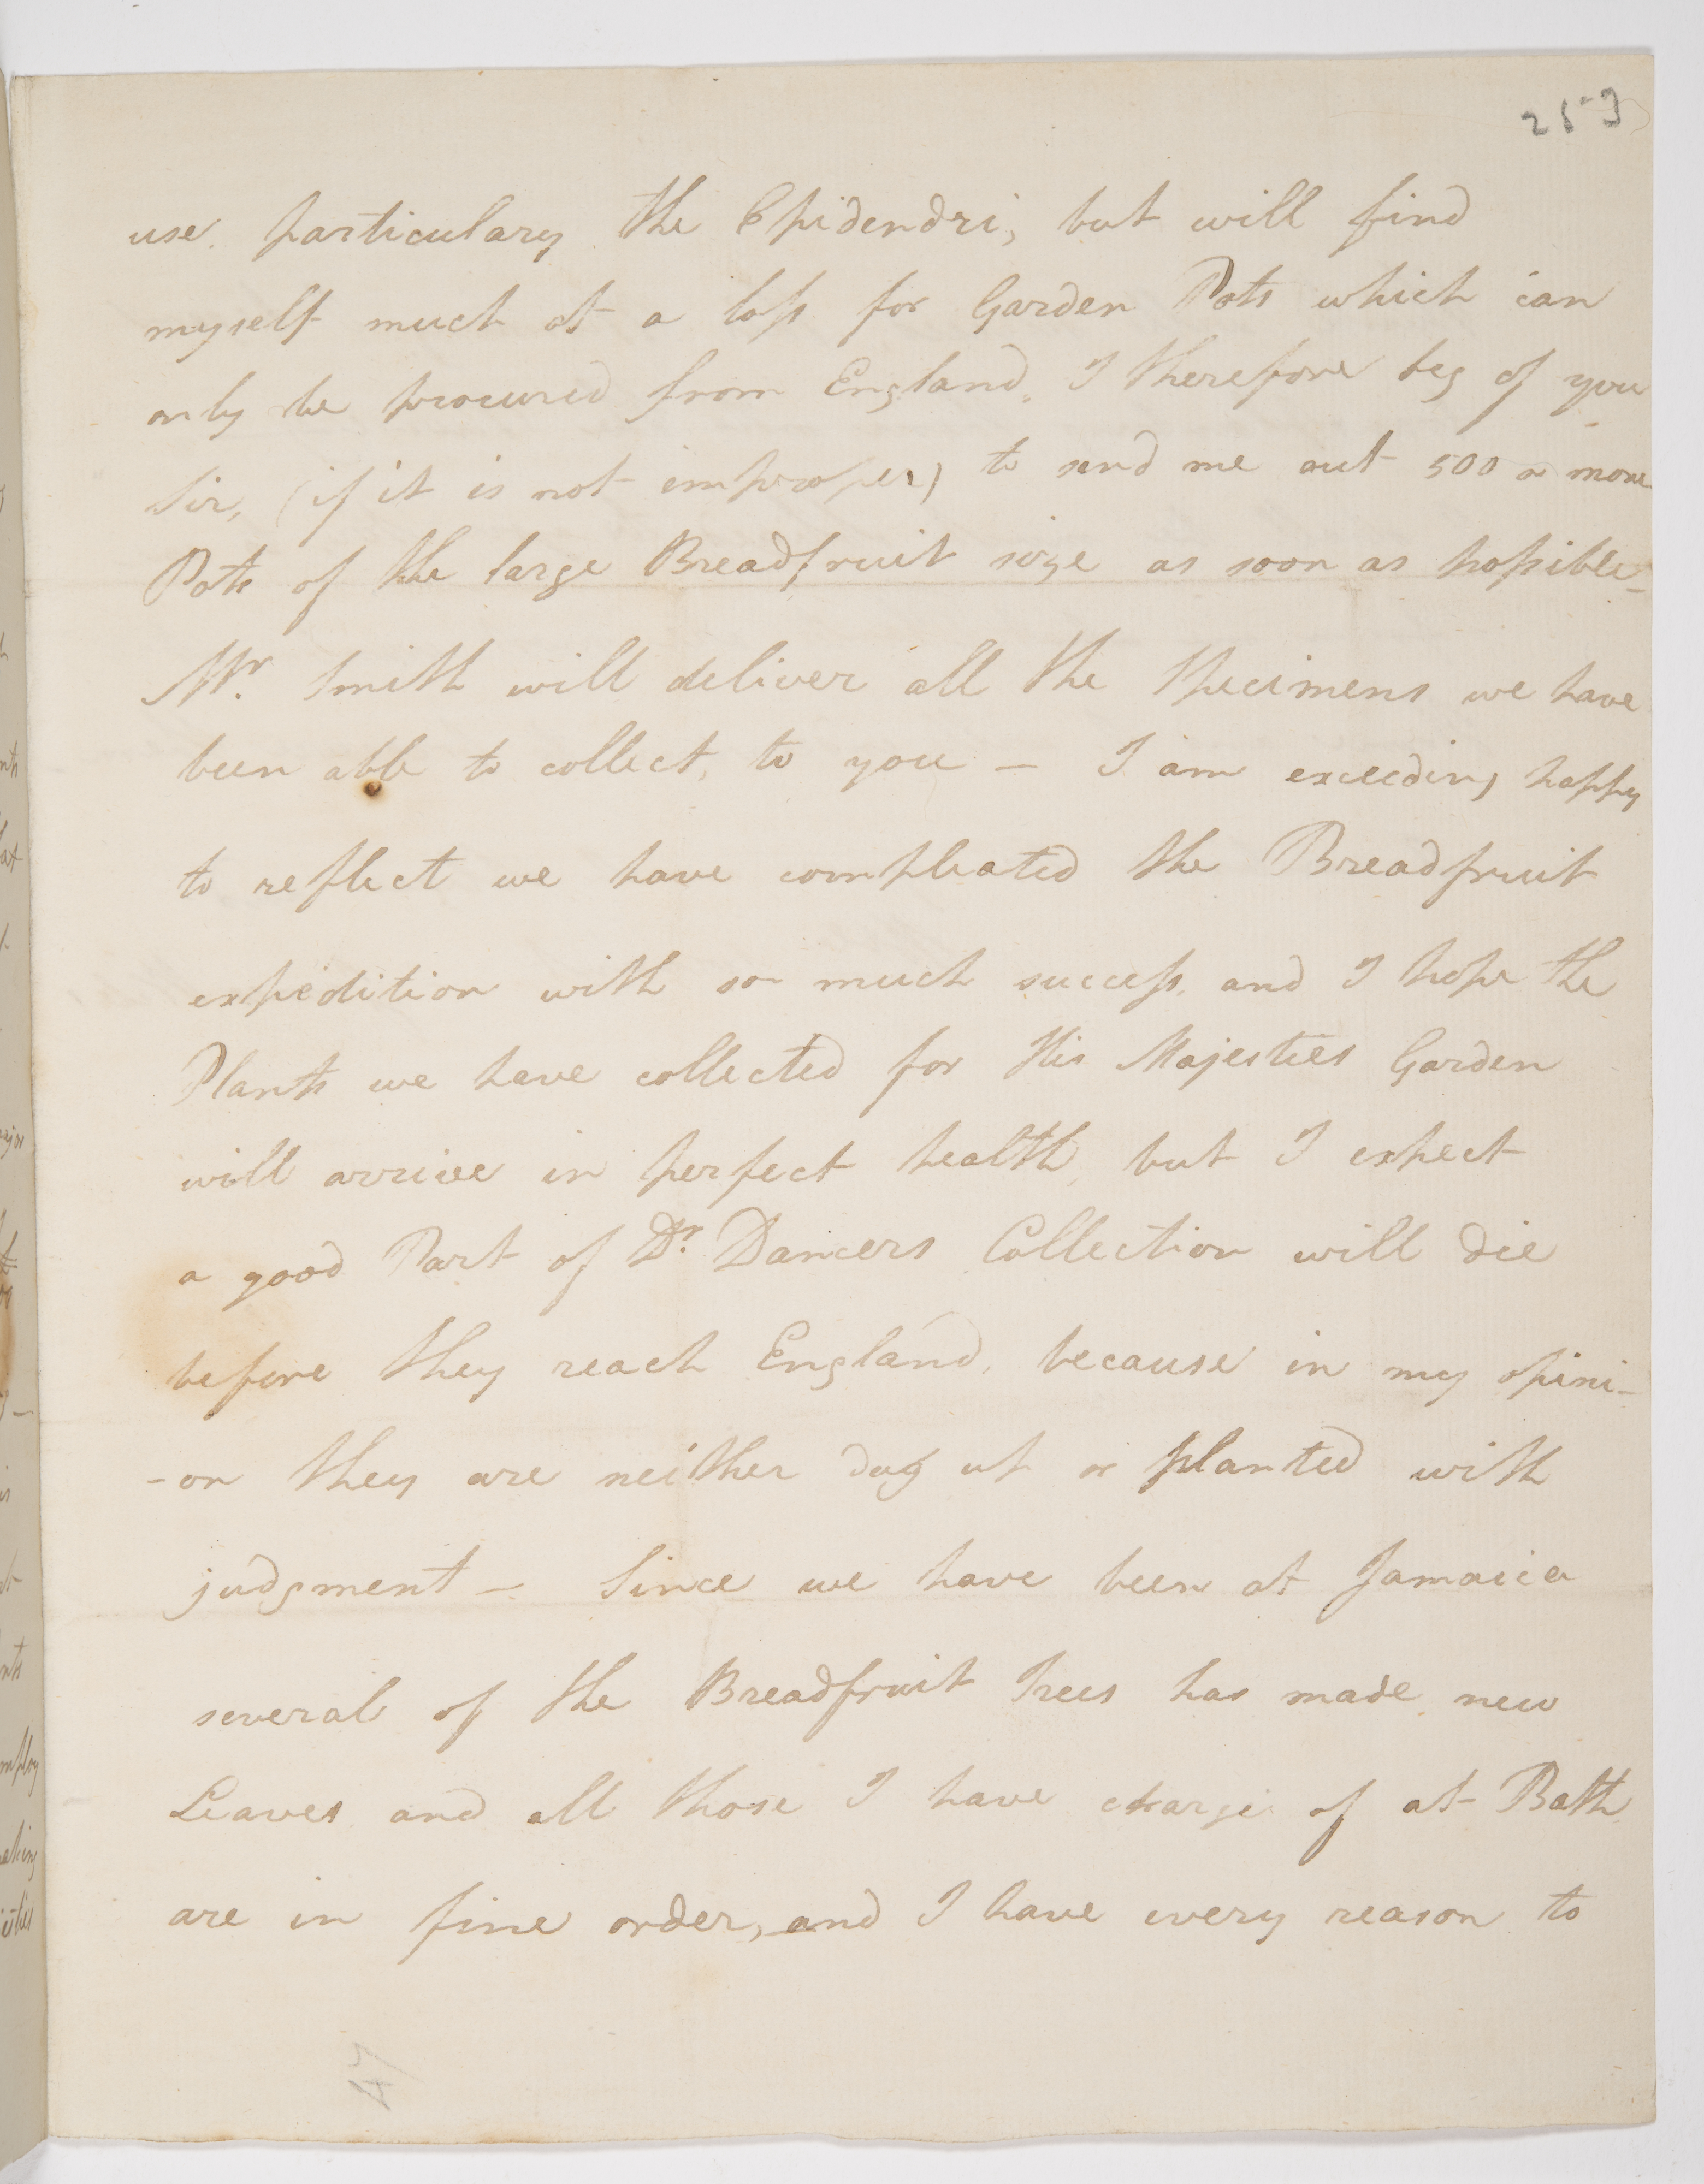 259
use particulary the Epidendri, but will find
myself much at a loss for Garden Pots which can
only be procured from England. I therefore beg of you
Sir, (if it is not improper) to send me out 500 or more
Pots of the large Breadfruit size as soon as possible_
Mr. Smith will deliver all the Specimens we have
been able to collect, to you – I am exceeding happy
to reflect we have compleated the Breadfruit
expedition with so much success, and I hope the
Plants we have collected for His Majesties Garden
will arrive in perfect health, but I expect
a good Part of Dr. Dancers Collection will die
before they reach England, because in my opini-
-on they are neither dug up or planted with
judgment – Since we have been at Jamaica
several of the Breadfruit Trees has made new
Leaves and all those I have charge of at Bath,
are in fine order, and I have every reason to
47